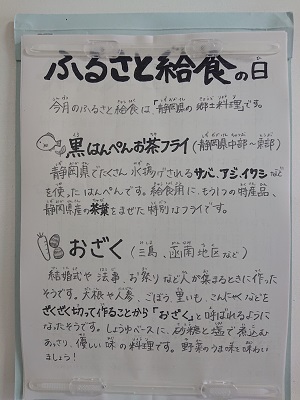 ふるさと給食の日
今月のふるさと給食は「静岡県の郷土料理」です。
黒はんぺんお茶フライ(静岡県中部～東部)
静岡県でたくさん水揚げされるサバ、アジ、イワシなど
を使ったはんぺんです。給食用に、もう1つの特産品、
静岡県産の茶葉をまぜた特別なフライです。
おざく(三島、函南地区など)
結婚式や法事、お祭りなど人が集まるときに作った
そうです。大根や人参、ごぼう、里いも、こんにゃくなどを
ざくざく切って作ることから「おざく」と呼ばれるように
なったそうです。しょうゆベースに、砂糖と塩で煮込む
あっさり、優しい味の料理です。野菜のうま味を味わい
ましょう!